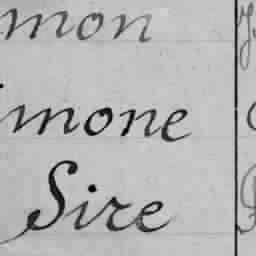 mon
imone
Sire